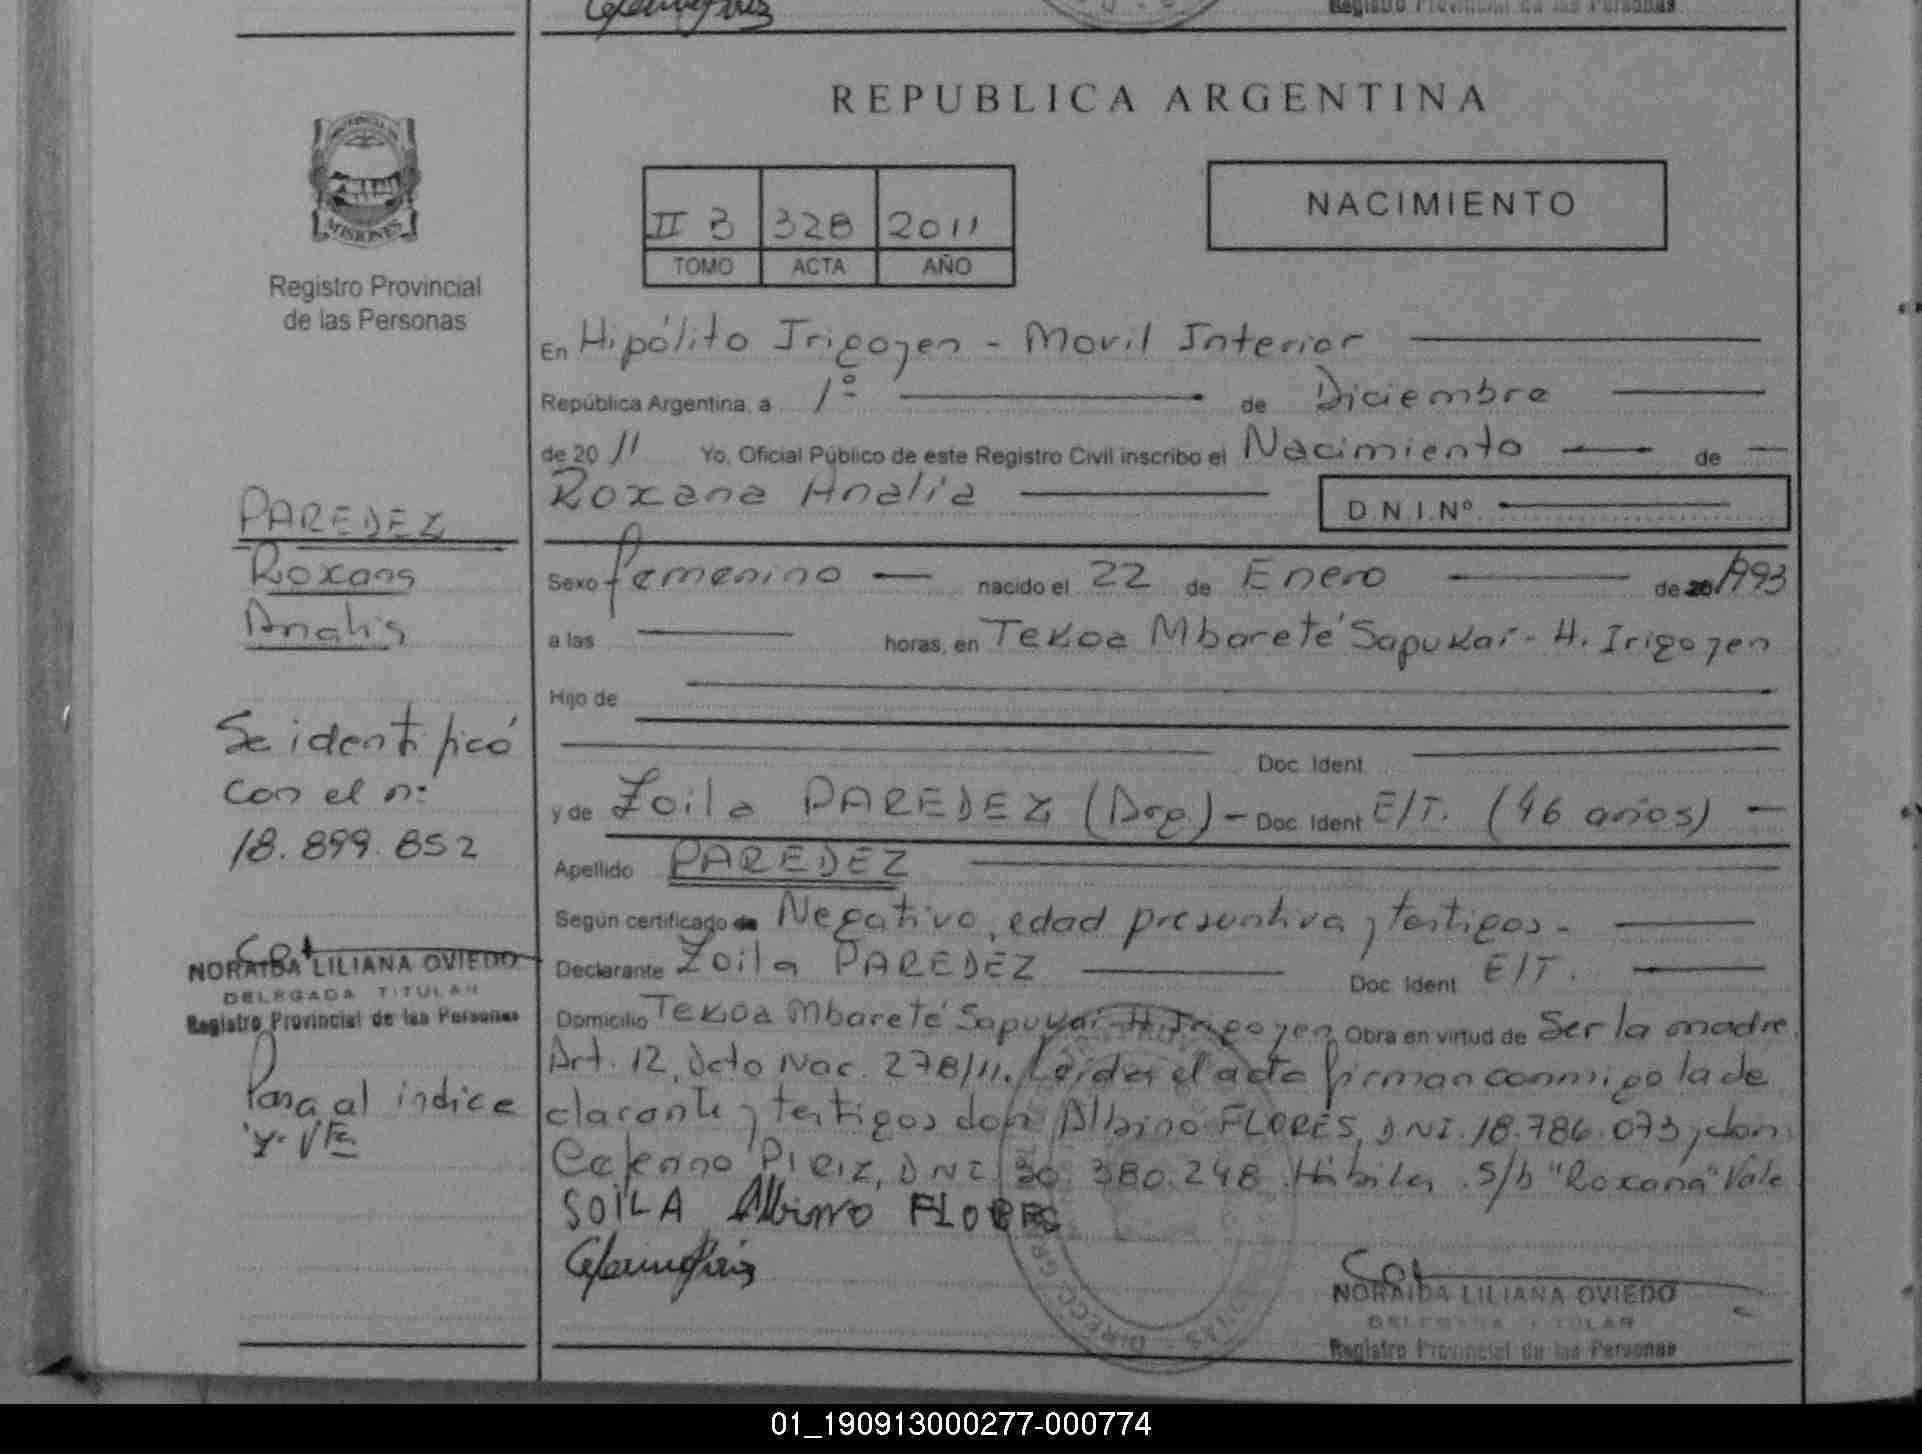 Registro Provincial de las Personas
REPUBLICA ARGENTINA
PROVINCIA DE
MISIONES
Registro Provincial
de las Personas
II B 328 2011
TOMO ACTA AÑO
NACIMIENTO
En Hipólito Irigoyen - Movil Interior
República Argentina, a 1º de Diciembre
de 20 11 Yo, Oficial Público de este Registro Civil inscribo el Nacimiento de
Roxana Analia D.N.I.Nº
Sexo femenino nacido el 22 de Enero de 1993
a las horas, en Tekoa Mbareté Sapukai - H. Irigoyen
Hijo de
Doc. Ident.
y de Zoila PAREDEZ (Arg.) - Doc. Ident E/T. (46 años)
Apellido PAREDEZ
Según certificado de Negativo, edad presuntiva y testigos.
Declarante Zoila PAREDEZ Doc. Ident E/T.
Domicilio Tekoa Mbareté Sapukai - H. Irigoyen Obra en virtud de Ser la madre.
Art. 12, Dcto Nac. 278/11. Leída el acta firman conmigo la de
clarante y testigos don Albino FLORES, DNI. 18.786.073 y don
Ceferino Piriz, DNI 30.380.248. Hábiles. S/b "Roxana" Vale
SOILA Albino FLORES
NORAIDA LILIANA OVIEDO
DELEGADA TITULAR
Registro Provincial de las Personas
PAREDEZ
Roxana
Analia
Se identificó
con el nº
18.899.852
NORAIDA LILIANA OVIEDO
DELEGADA TITULAR
Registro Provincial de las Personas
Pasa al indice
01_190913000277-000774